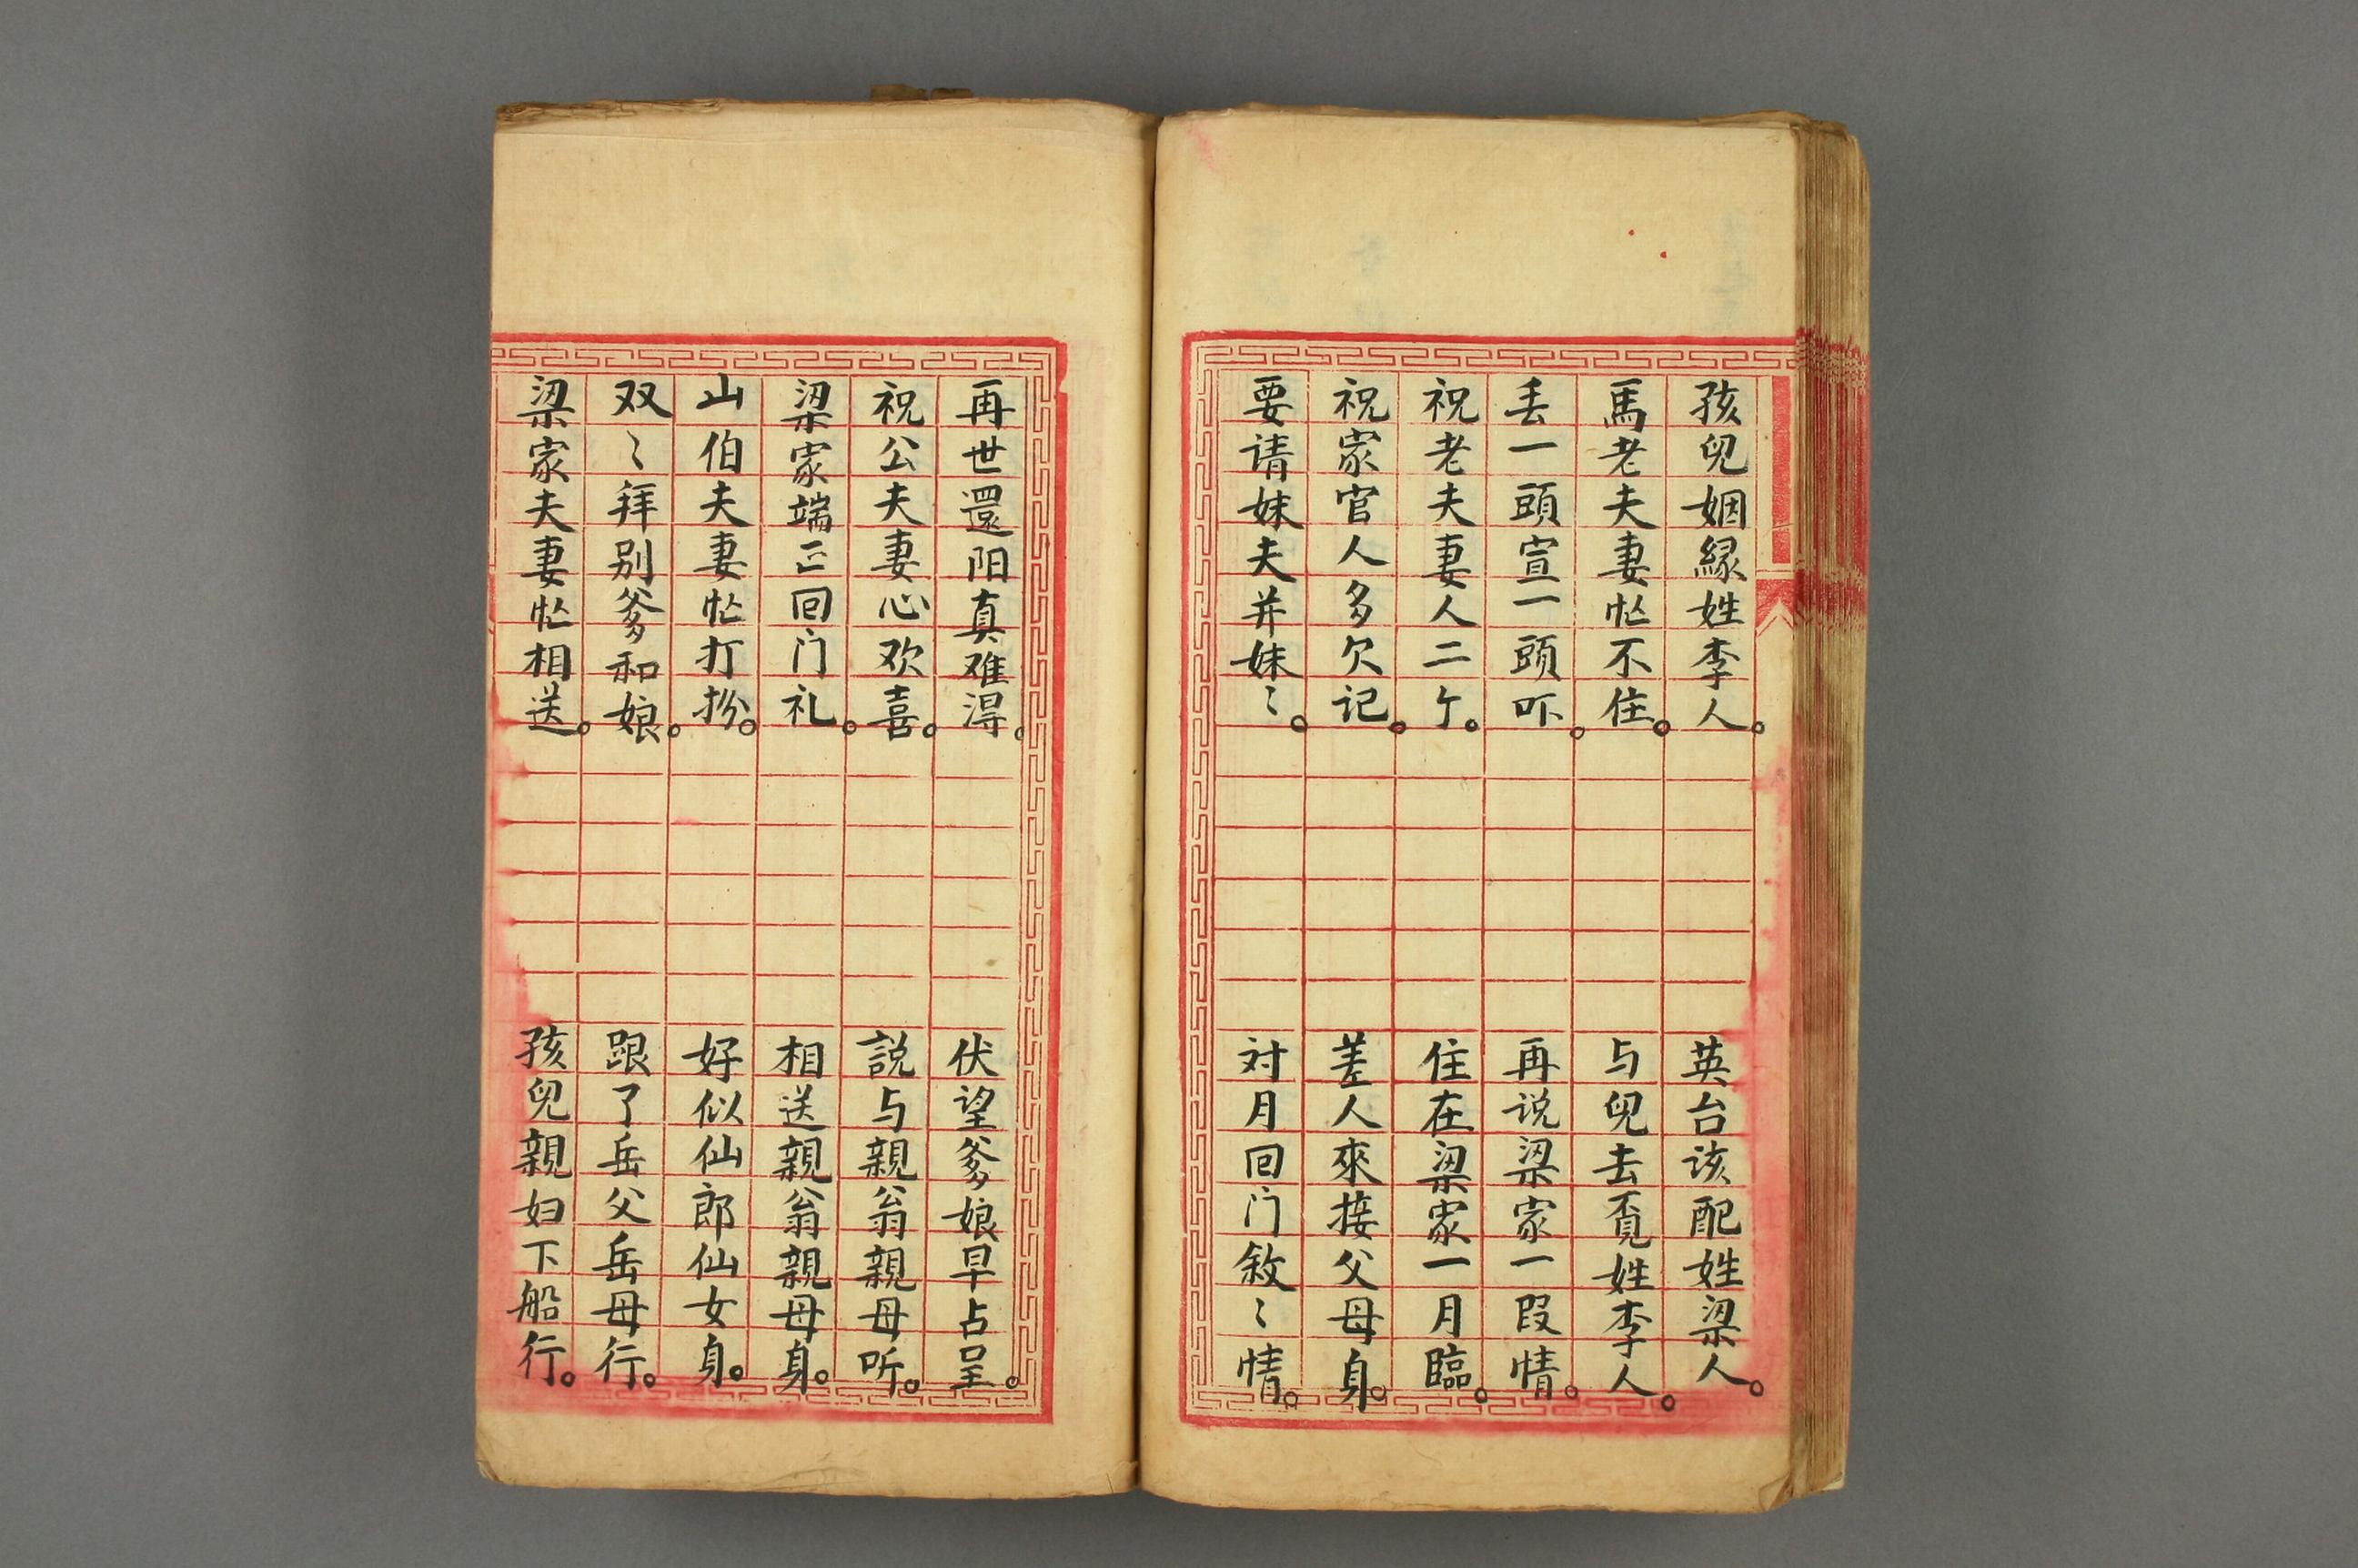 孩兒姻緣姓李人。英台该配姓梁人。
馬老夫妻忙不住。与兒去覔姓李人。
丢一頭宣一頭吓。再说梁家一段情。
祝老夫妻人二个。住在梁家一月臨。
祝家官人多欠记。差人來接父母身。
要请妹夫并妹〻。对月回门敘〻情。
再世還阳真难淂。伏望爹娘早占呈。
祝公夫妻心欢喜。説与親翁親母听。
梁家端正回门礼。相送親翁親母身。
山伯夫妻忙打扮。好似仙郎仙女身。
双〻拜别爹和娘。跟了岳父岳母行。
梁家夫妻忙相送。孩兒親妇下船行。